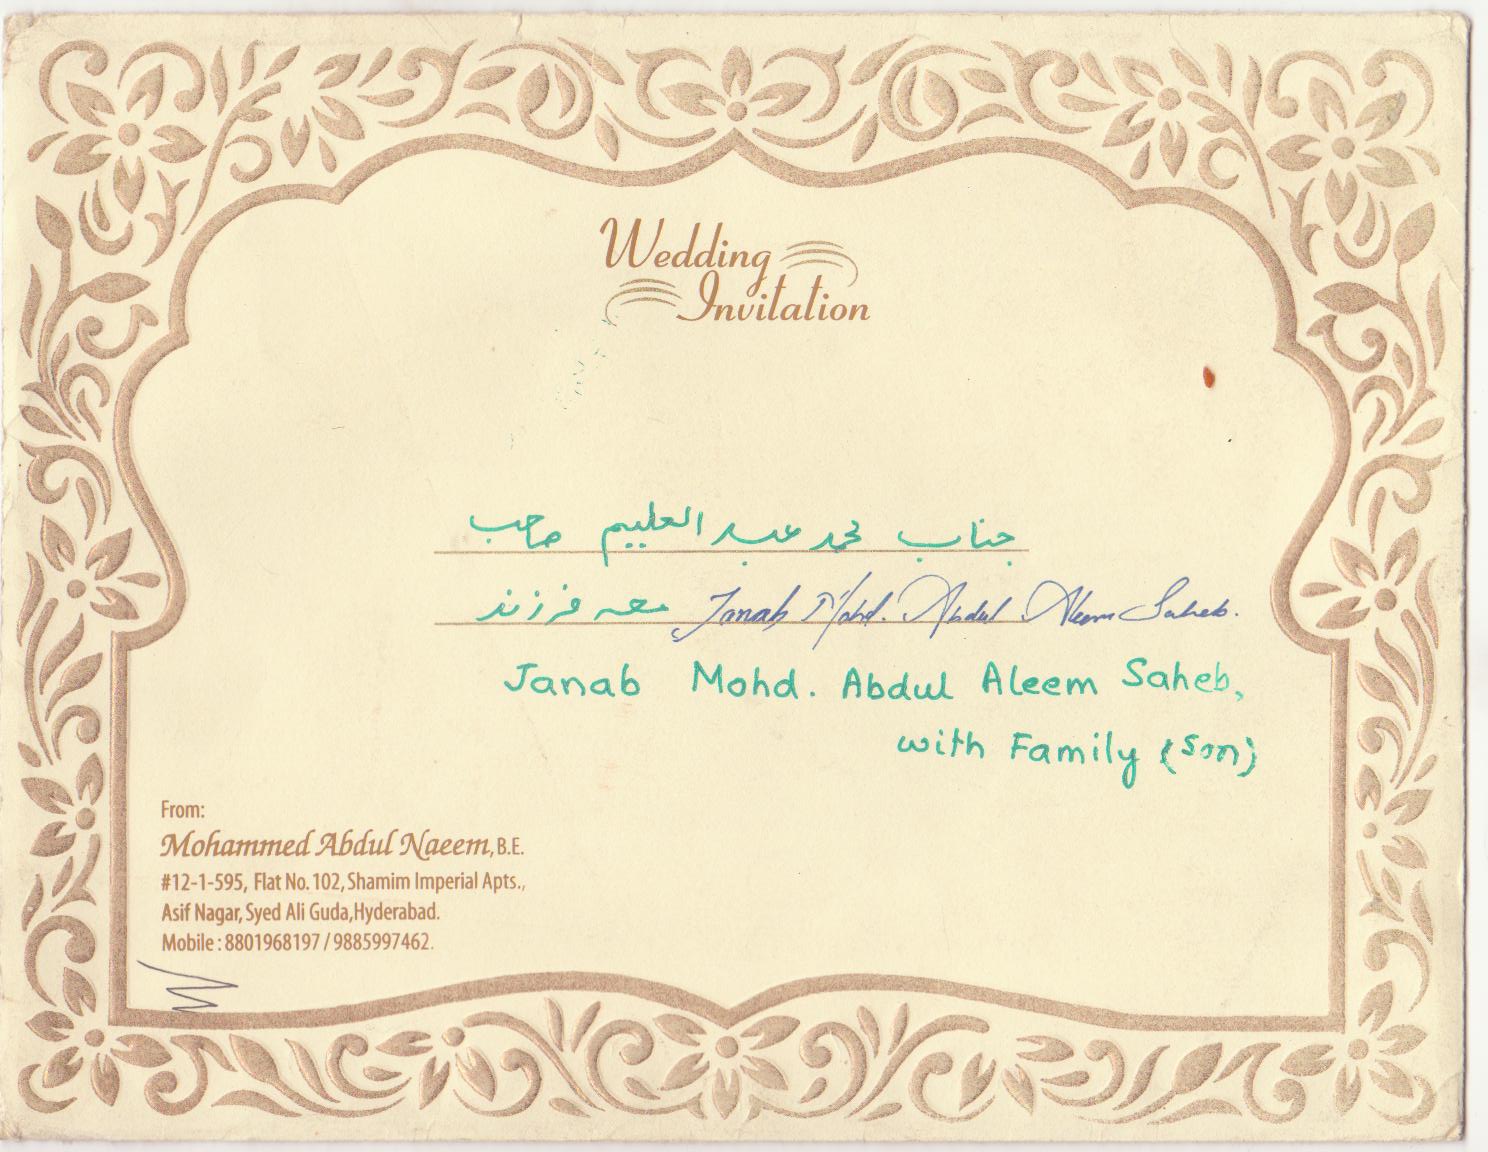 Wedding
Invitation
جناب محمد عبد العلیم صاحب
معہ فرزند Janab Mohd. Abdul Aleem Saheb.
Janab Mohd. Abdul Aleem Saheb,
with Family (son)
From:
Mohammed Abdul Naeem, B.E.
#12-1-595, Flat No. 102, Shamim Imperial Apts.,
Asif Nagar, Syed Ali Guda, Hyderabad.
Mobile : 8801968197 / 9885997462.